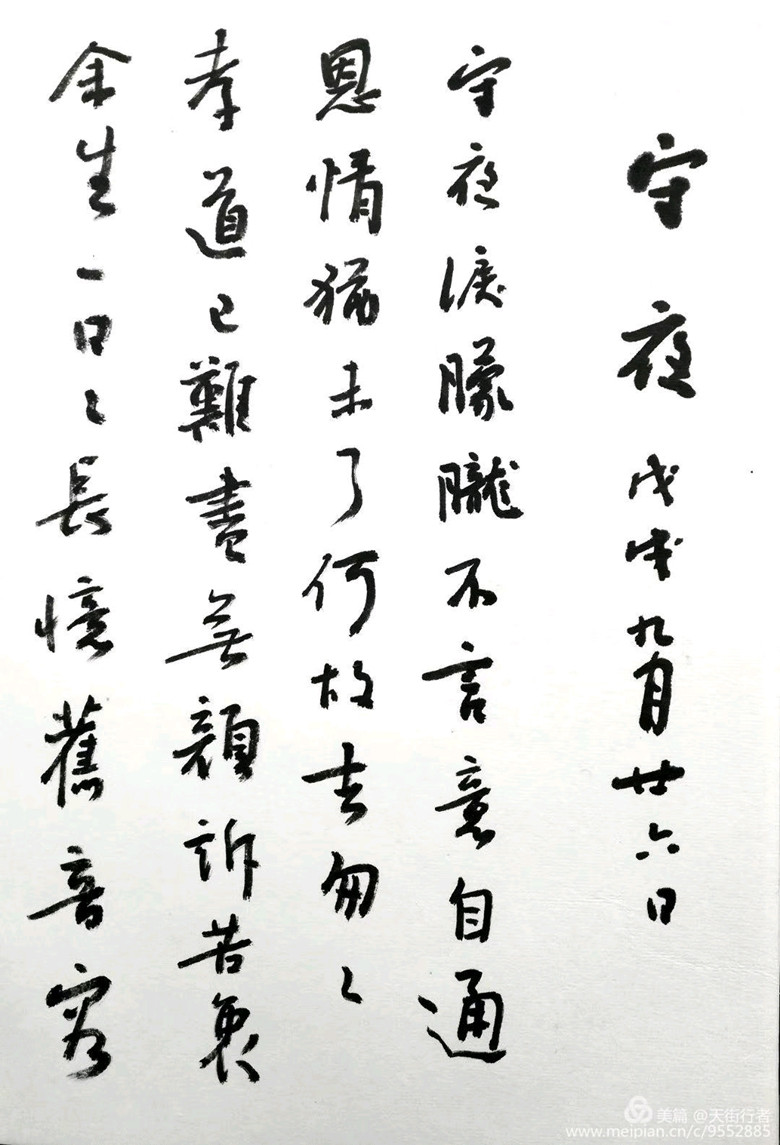 守夜 戊戌九月廿六日
守夜淚朦朧不言意自通
恩情猶未了何故去匆〻
孝道已難盡無顏訴苦衷
余生一日〻長憶舊音容
美篇 @天街行者
www.meipian.cn/c/9552885